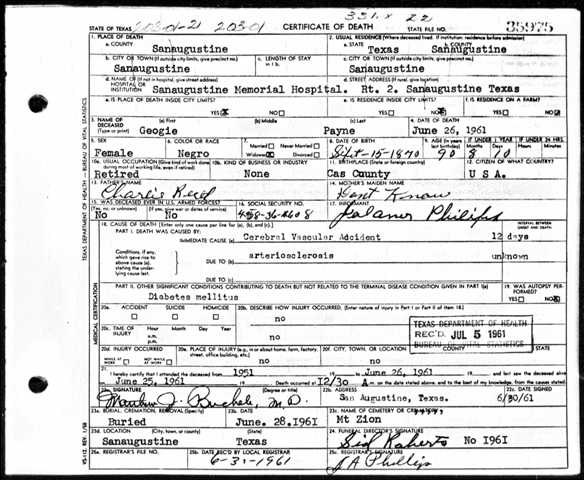 331.X 22
STATE OF TEXAS 203-01-21 203-01 CERTIFICATE OF DEATH STATE FILE NO. 35975
1. PLACE OF DEATH 2. USUAL RESIDENCE (Where deceased lived. If institution: residence before admission)
a. COUNTY Sanaugustine a. STATE Texas b. COUNTY Sanaugustine
b. CITY OR TOWN (If outside city limits, give precinct no.) c. LENGTH OF STAY in 1 b. c. CITY OR TOWN (If outside city limits, give precinct no.)
Sanaugustine Sanaugustine
d. NAME OF (If not in hospital, give street address) HOSPITAL OR INSTITUTION d. STREET ADDRESS (If rural, give location)
Sanaugustine Memorial Hospital. Rt. 2. Sanaugustine Texas
e. IS PLACE OF DEATH INSIDE CITY LIMITS? e. IS RESIDENCE INSIDE CITY LIMITS? f. IS RESIDENCE ON A FARM?
YES X NO YES NO YES NO
3. NAME OF DECEASED (Type or print) (a) First (b) Middle (c) Last 4. DATE OF DEATH
Geogie Payne June 26, 1961
5. SEX 6. COLOR OR RACE 7. Married Never Married Widowed Divorced 8. DATE OF BIRTH 9. AGE (In years last birthday) IF UNDER 1 YEAR IF UNDER 24 HRS.
Female Negro Sept-15-1870 90 8 10
10a. USUAL OCCUPATION (Give kind of work done during most of working life, even if retired) 10b. KIND OF BUSINESS OR INDUSTRY 11. BIRTHPLACE (State or foreign country) 12. CITIZEN OF WHAT COUNTRY?
Retired None Cas County U S A.
13. FATHER'S NAME 14. MOTHER'S MAIDEN NAME
Charlie Dont Know
15. WAS DECEASED EVER IN U.S. ARMED FORCES? 16. SOCIAL SECURITY NO. 17. INFORMANT
(Yes, no, or unknown) (If yes, give war or dates of service)
No No 458-36-2608 Phillips
18. CAUSE OF DEATH (Enter only one cause per line for (a), (b), and (c).) INTERVAL BETWEEN ONSET AND DEATH
PART I. DEATH WAS CAUSED BY:
IMMEDIATE CAUSE (a) Cerebral Vascular Addident 12 days
Conditions, if any, which gave rise to above cause (a), stating the underlying cause last.
DUE TO (b) arteriosclerosis unknown
DUE TO (c)
PART II. OTHER SIGNIFICANT CONDITIONS CONTRIBUTING TO DEATH BUT NOT RELATED TO THE TERMINAL DISEASE CONDITION GIVEN IN PART I(a) 19. WAS AUTOPSY PERFORMED?
Diabetes mellitus YES NO X
20a. ACCIDENT SUICIDE HOMICIDE 20b. DESCRIBE HOW INJURY OCCURRED. (Enter nature of injury in Part I or Part II of item 18.)
no
20c. TIME OF INJURY Hour Month Day Year
a.m. p.m. no
TEXAS DEPARTMENT OF HEALTH
REC'D JUL 5 1961
BUREAU OF VITAL STATISTICS
20d. INJURY OCCURRED WHILE AT WORK NOT WHILE AT WORK 20e. PLACE OF INJURY (e.g., in or about home, farm, factory, street, office building, etc.) 20f. CITY, TOWN, OR LOCATION COUNTY STATE
no
21. I hereby certify that I attended the deceased from 1951 to June 26, 1961 and last saw the deceased alive
June 25, 1961 Death occurred at 12/30 A m. on the date stated above, and to the best of my knowledge, from the causes stated.
22a. SIGNATURE (Degree or title) 22b. ADDRESS 22c. DATE SIGNED
M.D. San Augustine, Texas. 6/30/61
23a. BURIAL, CREMATION, REMOVAL (Specify) 23b. DATE 23c. NAME OF CEMETERY OR CREMATORY
Buried June. 28.1961 Mt Zion
23d. LOCATION (City, town, or county) (State) 24. FUNERAL DIRECTOR'S SIGNATURE
Sanaugustine Texas Sid Roberts No 1961
25a. REGISTRAR'S FILE NO. 25b. DATE REC'D BY LOCAL REGISTRAR 25c. REGISTRAR'S SIGNATURE
1961 J A Phillips
TEXAS DEPARTMENT OF HEALTH — BUREAU OF VITAL STATISTICS
MEDICAL CERTIFICATION